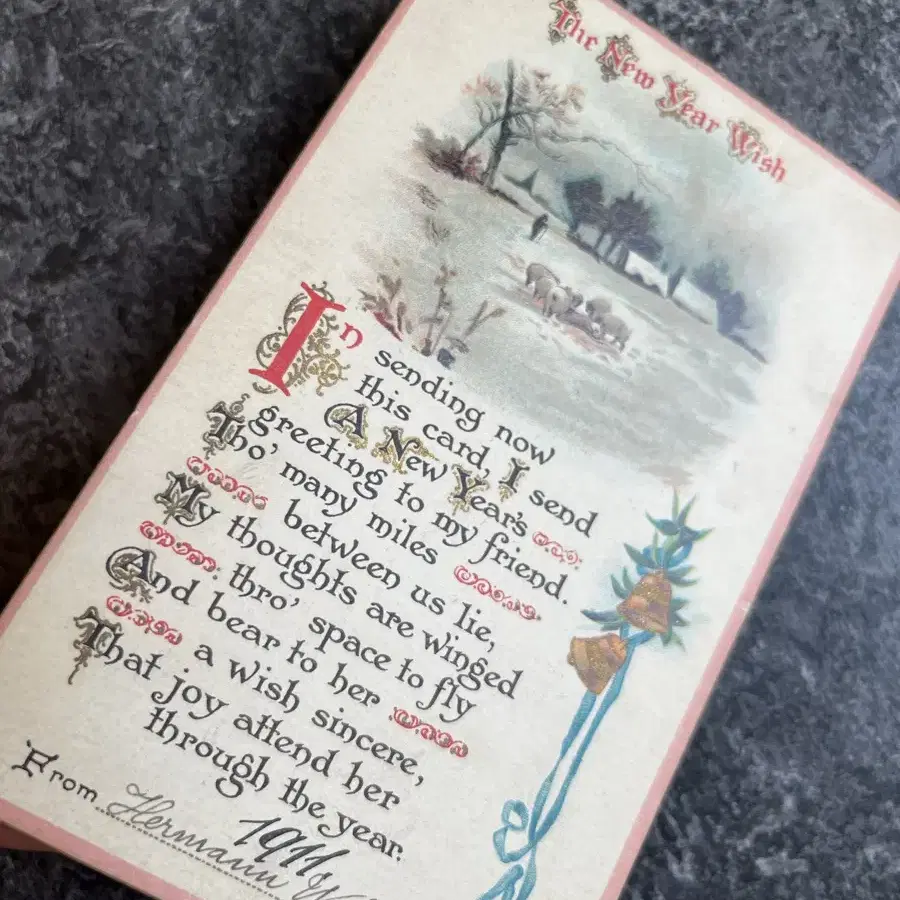 The New Year Wish
In sending now
this card, I send
A New Year's
greeting to my friend.
Tho' many miles
between us lie,
My thoughts are winged
thro' space to fly
And bear to her
a wish sincere,
That joy attend her
through the year.
1911
From Hermann